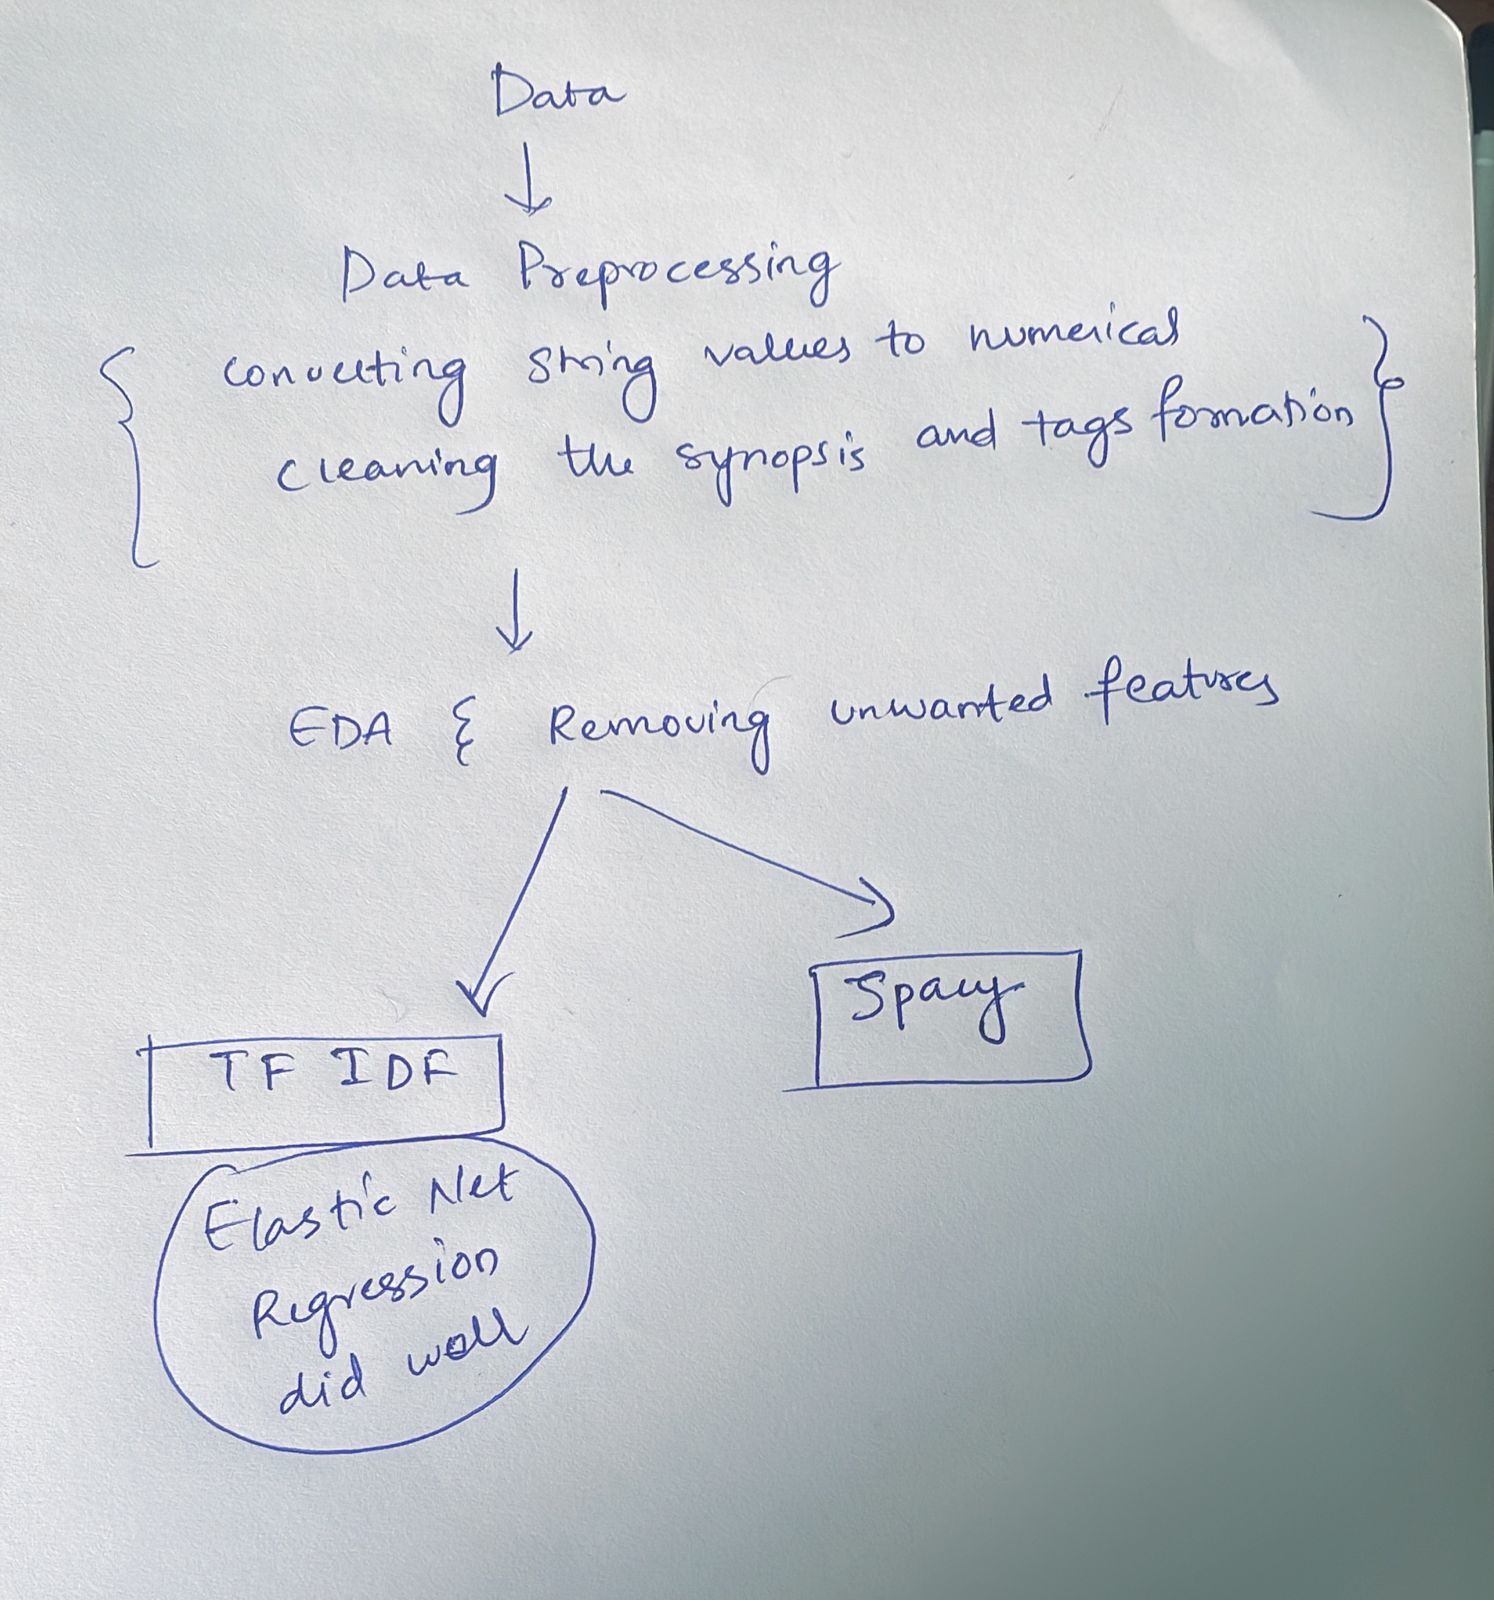 Data
Data Preprocessing
converting string values to numerical
cleaning the synopsis and tags formation
EDA & Removing unwanted features
Spacy
TF IDF
Elastic Net
Regression
did well